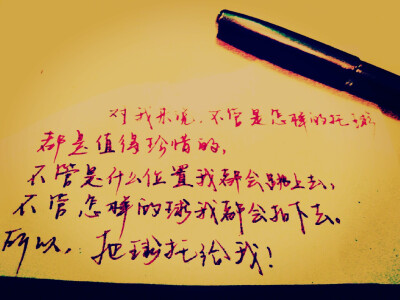 对我来说,不管是怎样的托球
都是值得珍惜的,
不管是什么位置我都会跳上去,
不管怎样的球我都会扣下去。
所以,把球托给我!